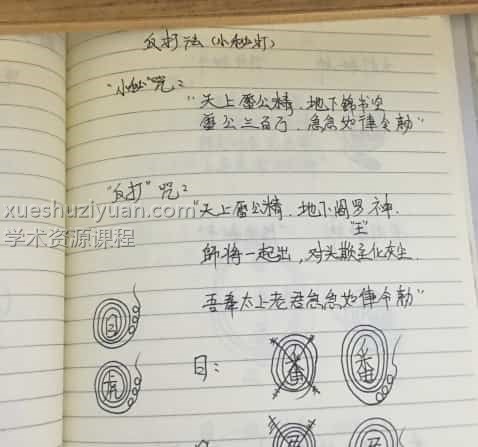 反打法（小秘打）
"小秘"咒：
"天上雷公精．地下锦书空
雷公三百万，急急如律令勅"
"反打"咒：
"天上雷公精．地下阎罗神．
"王"
師将一起出，对头欺主化灰尘．
吾奉太上老君急急如律令勅"
日：
番 番
xueshuziyuan.com
学术资源课程